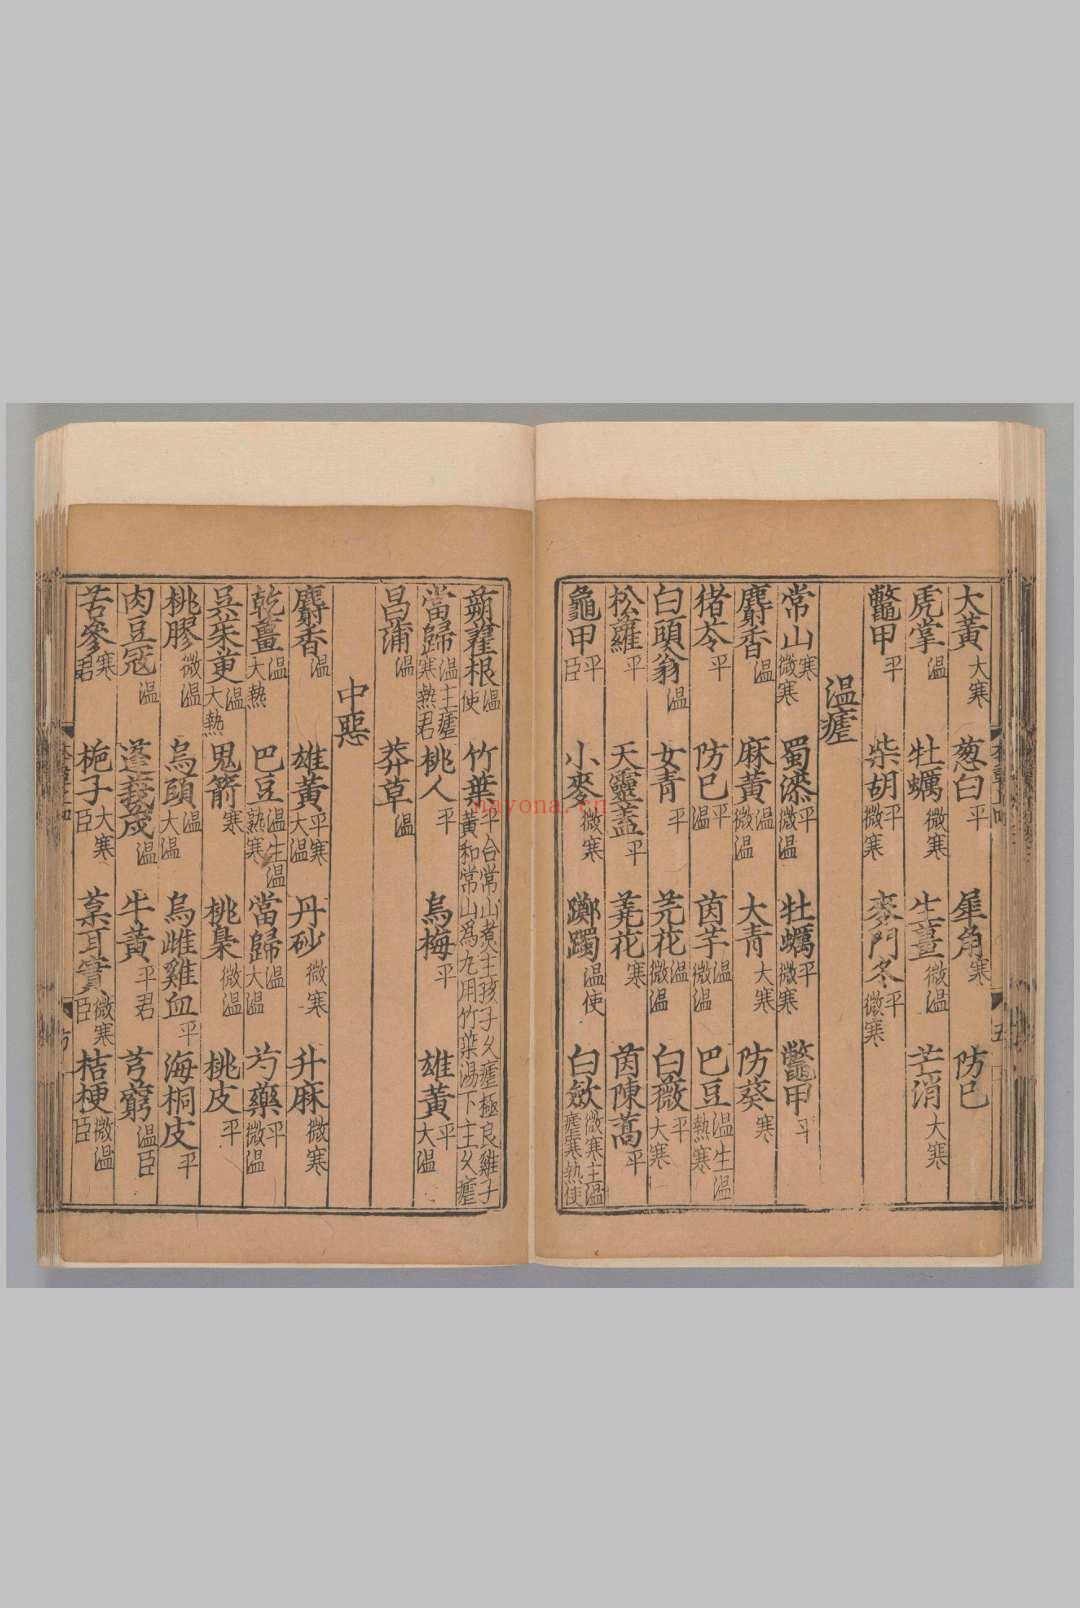 大黃大寒 葱白平 犀角寒 防巳
虎掌温 牡蠣微寒 生薑微温 芒消大寒
鼈甲平 柴胡平微寒 麥門冬平微寒
温瘧
常山寒微寒 蜀漆平微温 牡蠣平微寒 鼈甲平
麝香温 麻黃温微温 大青大寒 防葵寒
猪苓平 防巳平温 茵芋温微温 巴豆温生温熟寒
白頭翁温 女青平 芫花温微温 白薇平大寒
松蘿平 天靈蓋平 蕘花寒 茵陳蒿平
龜甲平臣 小麥微寒 躑躅温使 白斂微寒主温瘧寒熱使
蒴藋根温使 竹葉平合常山煮主孩子久瘧極良雞子黃和常山爲丸用竹葉湯下主久瘧
當歸温主瘧寒熱君 桃人平 烏梅平 雄黃平大温
昌蒲温 莽草温
中惡
麝香温 雄黃平寒大温 丹砂微寒 升麻微寒
乾薑温大熱 巴豆温生温熟寒 當歸温大温 芍藥平微温
吳茱萸温大熱 鬼箭寒 桃梟微温 桃皮平
桃膠微温 烏頭温大温 烏雌雞血平 海桐皮平
肉豆蔻温 蓬莪茂温 牛黃平君 芎藭温臣
苦參寒君 梔子大寒臣 葈耳實微寒臣 桔梗微温臣
nayona.cn